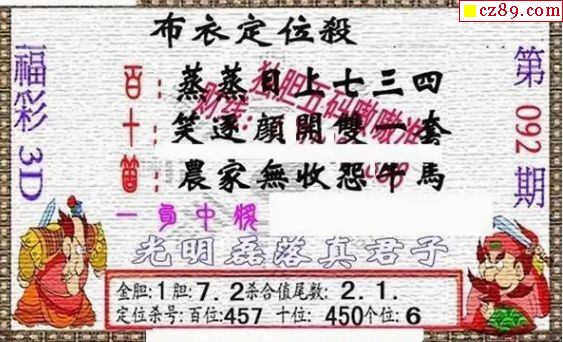 cz89.com
布衣定位殺
福彩3D
第092期
百：蒸蒸日上七三四
十：笑逐顔開雙一套
個：農家無收怨牛馬
独胆五码嗷嗷准
一員中獎
光明磊落真君子
金胆:1胆:7.2杀合值尾数:2.1.
定位杀号:百位:457 十位:450个位:6